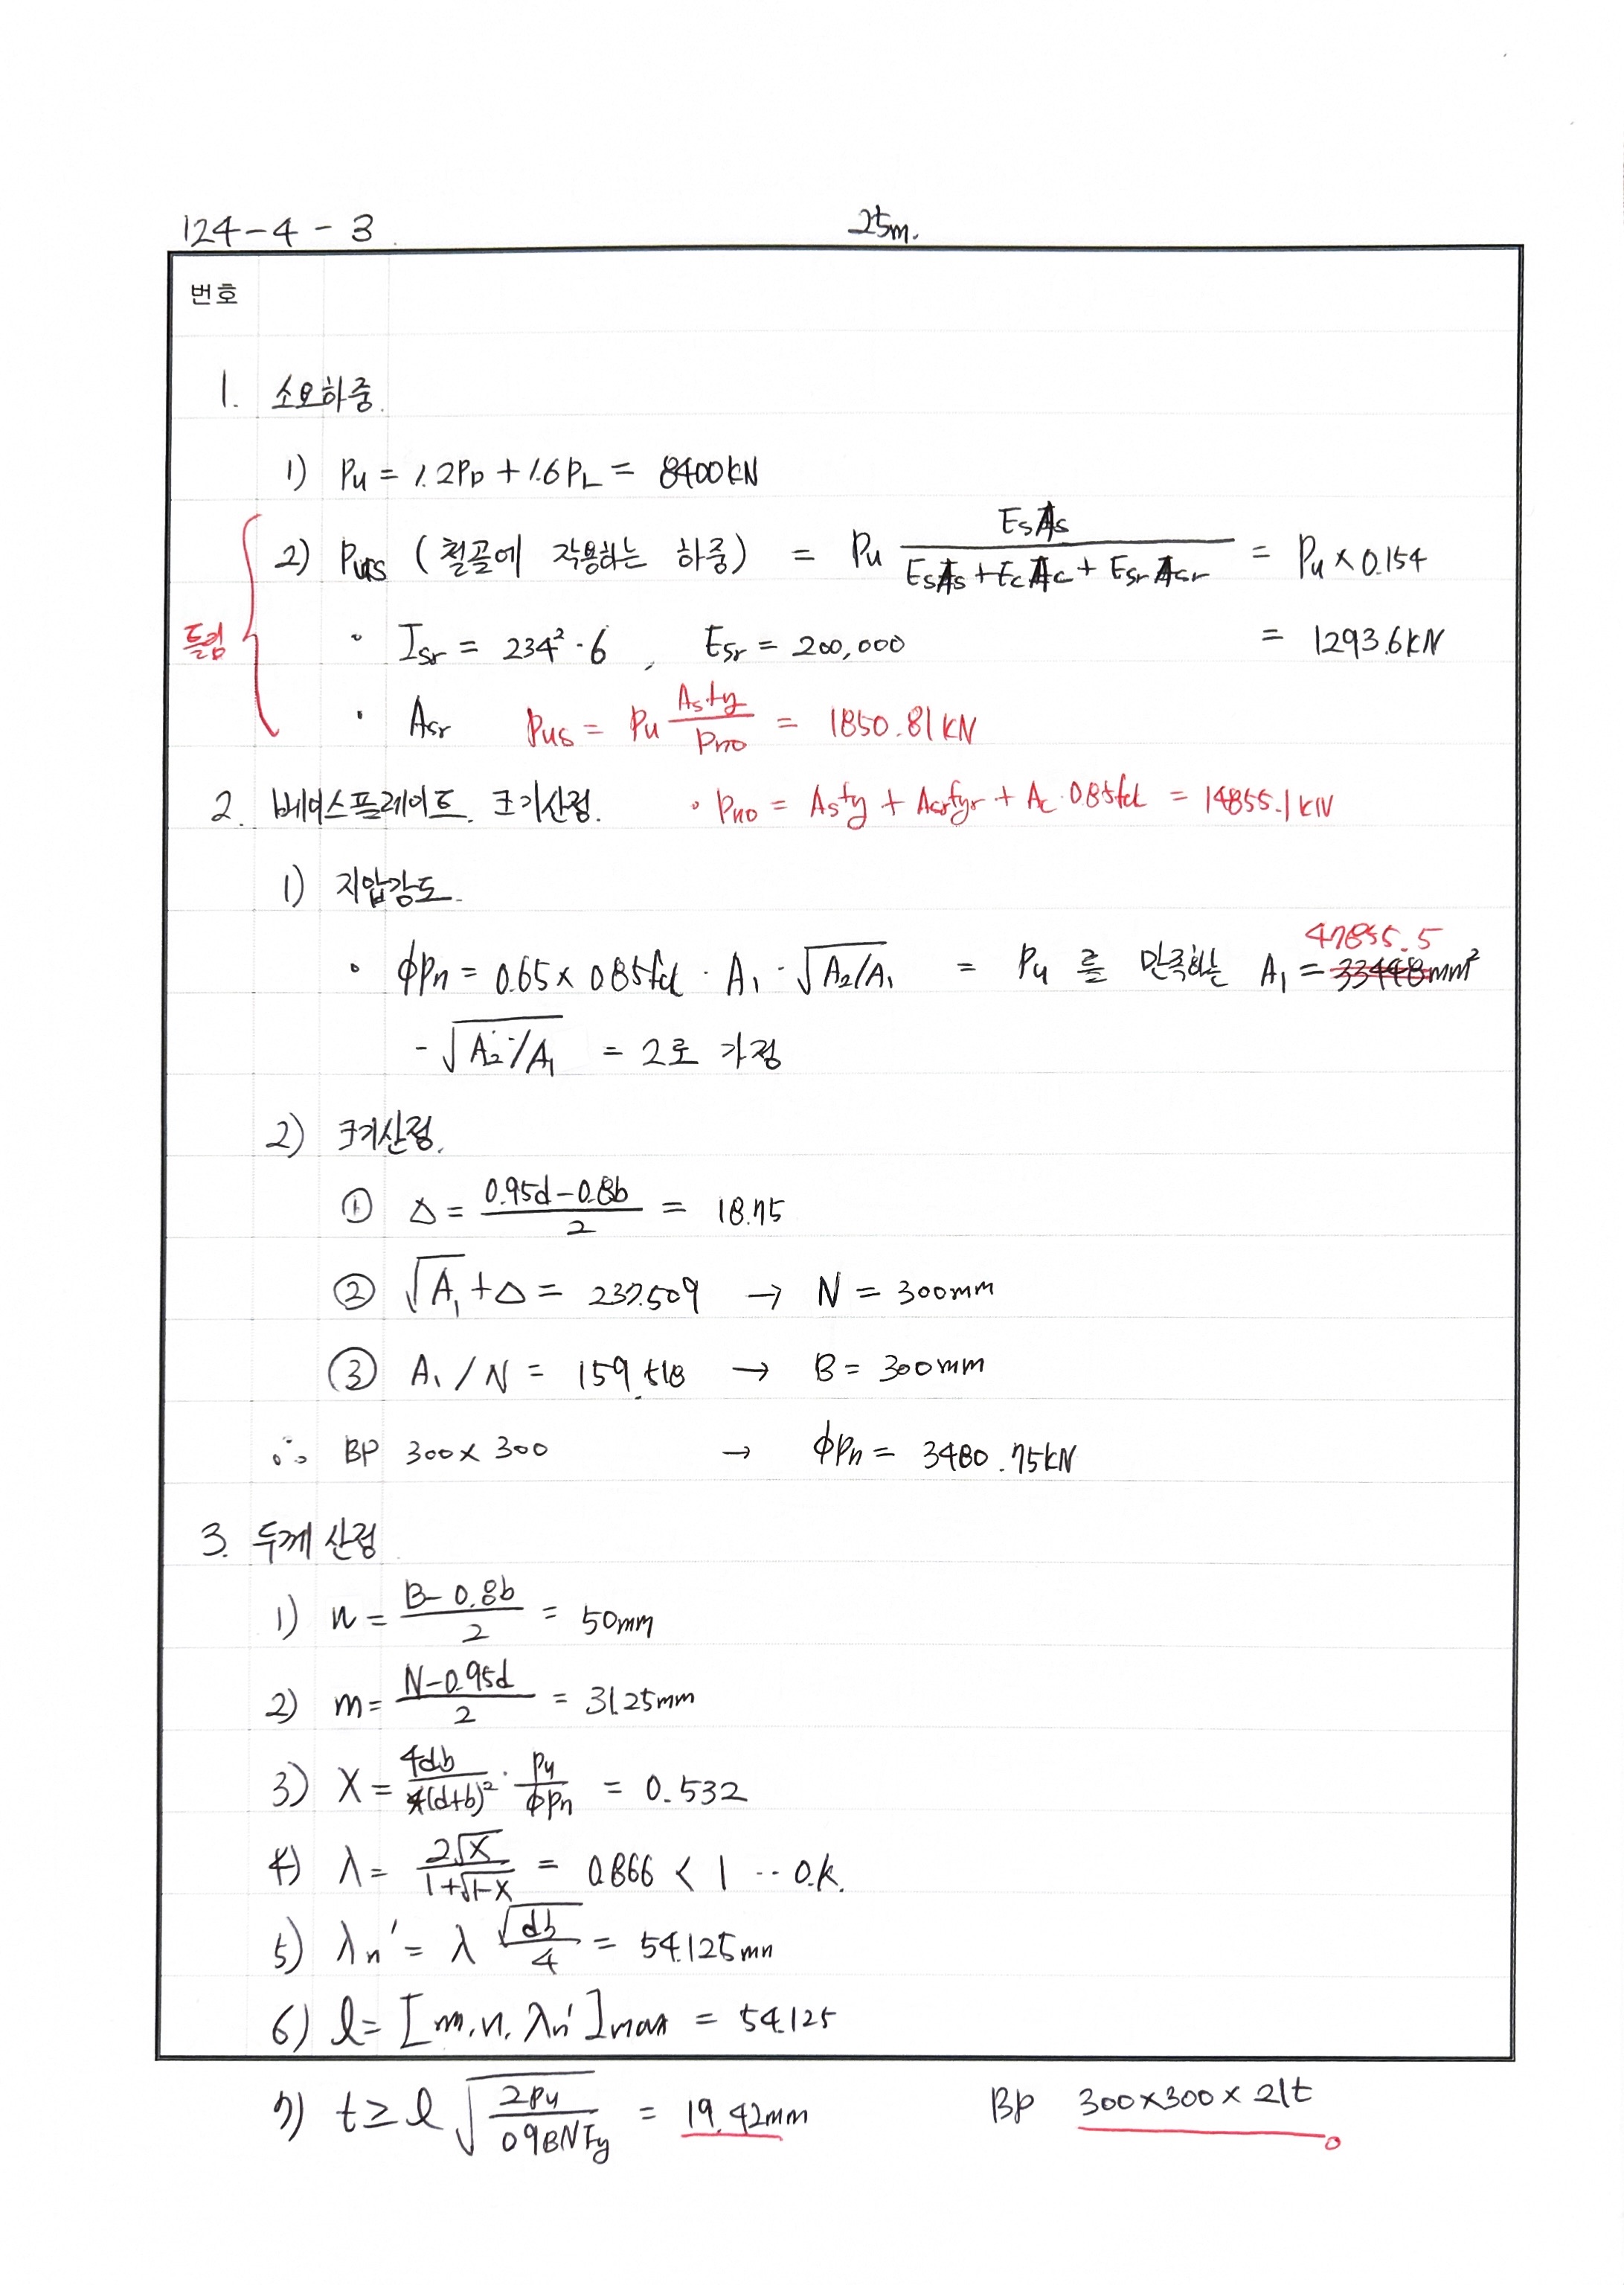 124-4-3
25m.
번호
1. 소요하중.
1) Pu = 1.2PD + 1.6PL = 8400kN
2) Pus (철골에 작용하는 하중) = Pu EsAs / (EsAs + EcAc + EsrAsr) = Pu × 0.154
틀림
• Isr = 234²·6, Esr = 200,000 = 1293.6kN
• Asr Pus = Pu Asfy / Pno = 1850.81kN
2. 베이스플레이트. 크기산정. • Pno = Asfy + Asrfyr + Ac·0.85fck = 14855.1kN
1) 지압강도.
47855.5
• ϕPn = 0.65 × 0.85fck · A₁ · √(A₂/A₁) = Pu 를 만족하는 A₁ = 33448mm²
- √(A₂/A₁) = 2로 가정
2) 크기산정.
① Δ = (0.95d-0.8b) / 2 = 18.75
② √A₁ + Δ = 237.509 → N = 300mm
③ A₁/N = 159.518 → B = 300mm
∴ BP 300×300 → ϕPn = 3480.75kN
3. 두께 산정
1) n = (B-0.8b) / 2 = 50mm
2) m = (N-0.95d) / 2 = 31.25mm
3) X = 4db / (d+b)² · Pu / ϕPn = 0.532
4) λ = 2√X / (1+√(1-X)) = 0.866 < 1 ·· O.K.
5) λn' = λ √(db) / 4 = 54.125mm
6) l = [m, n, λn']max = 54.125
7) t ≥ l √(2Pu / 0.9BNFy) = 19.42mm BP 300×300×21t